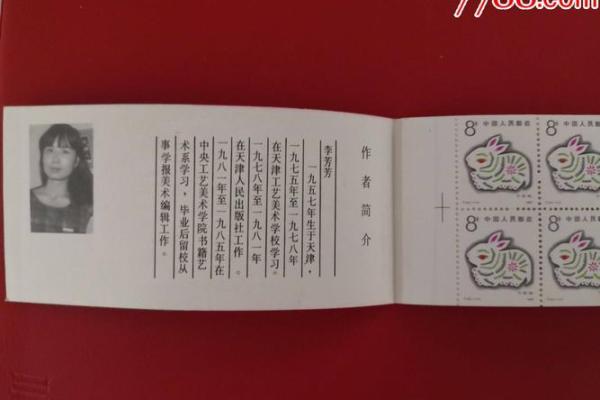 7788.com
作者简介
李芳芳
一九五七年生于天津，
一九七五年至一九七八年
在天津工艺美术学校学习。
一九七八年至一九八一年
在天津人民出版社工作。
一九八一年至一九八五年在
中央工艺美术学院书籍艺
术系学习，毕业后留校从
事学报美术编辑工作。
8分 中国人民邮政
8分
8分 中国人民邮政
8分